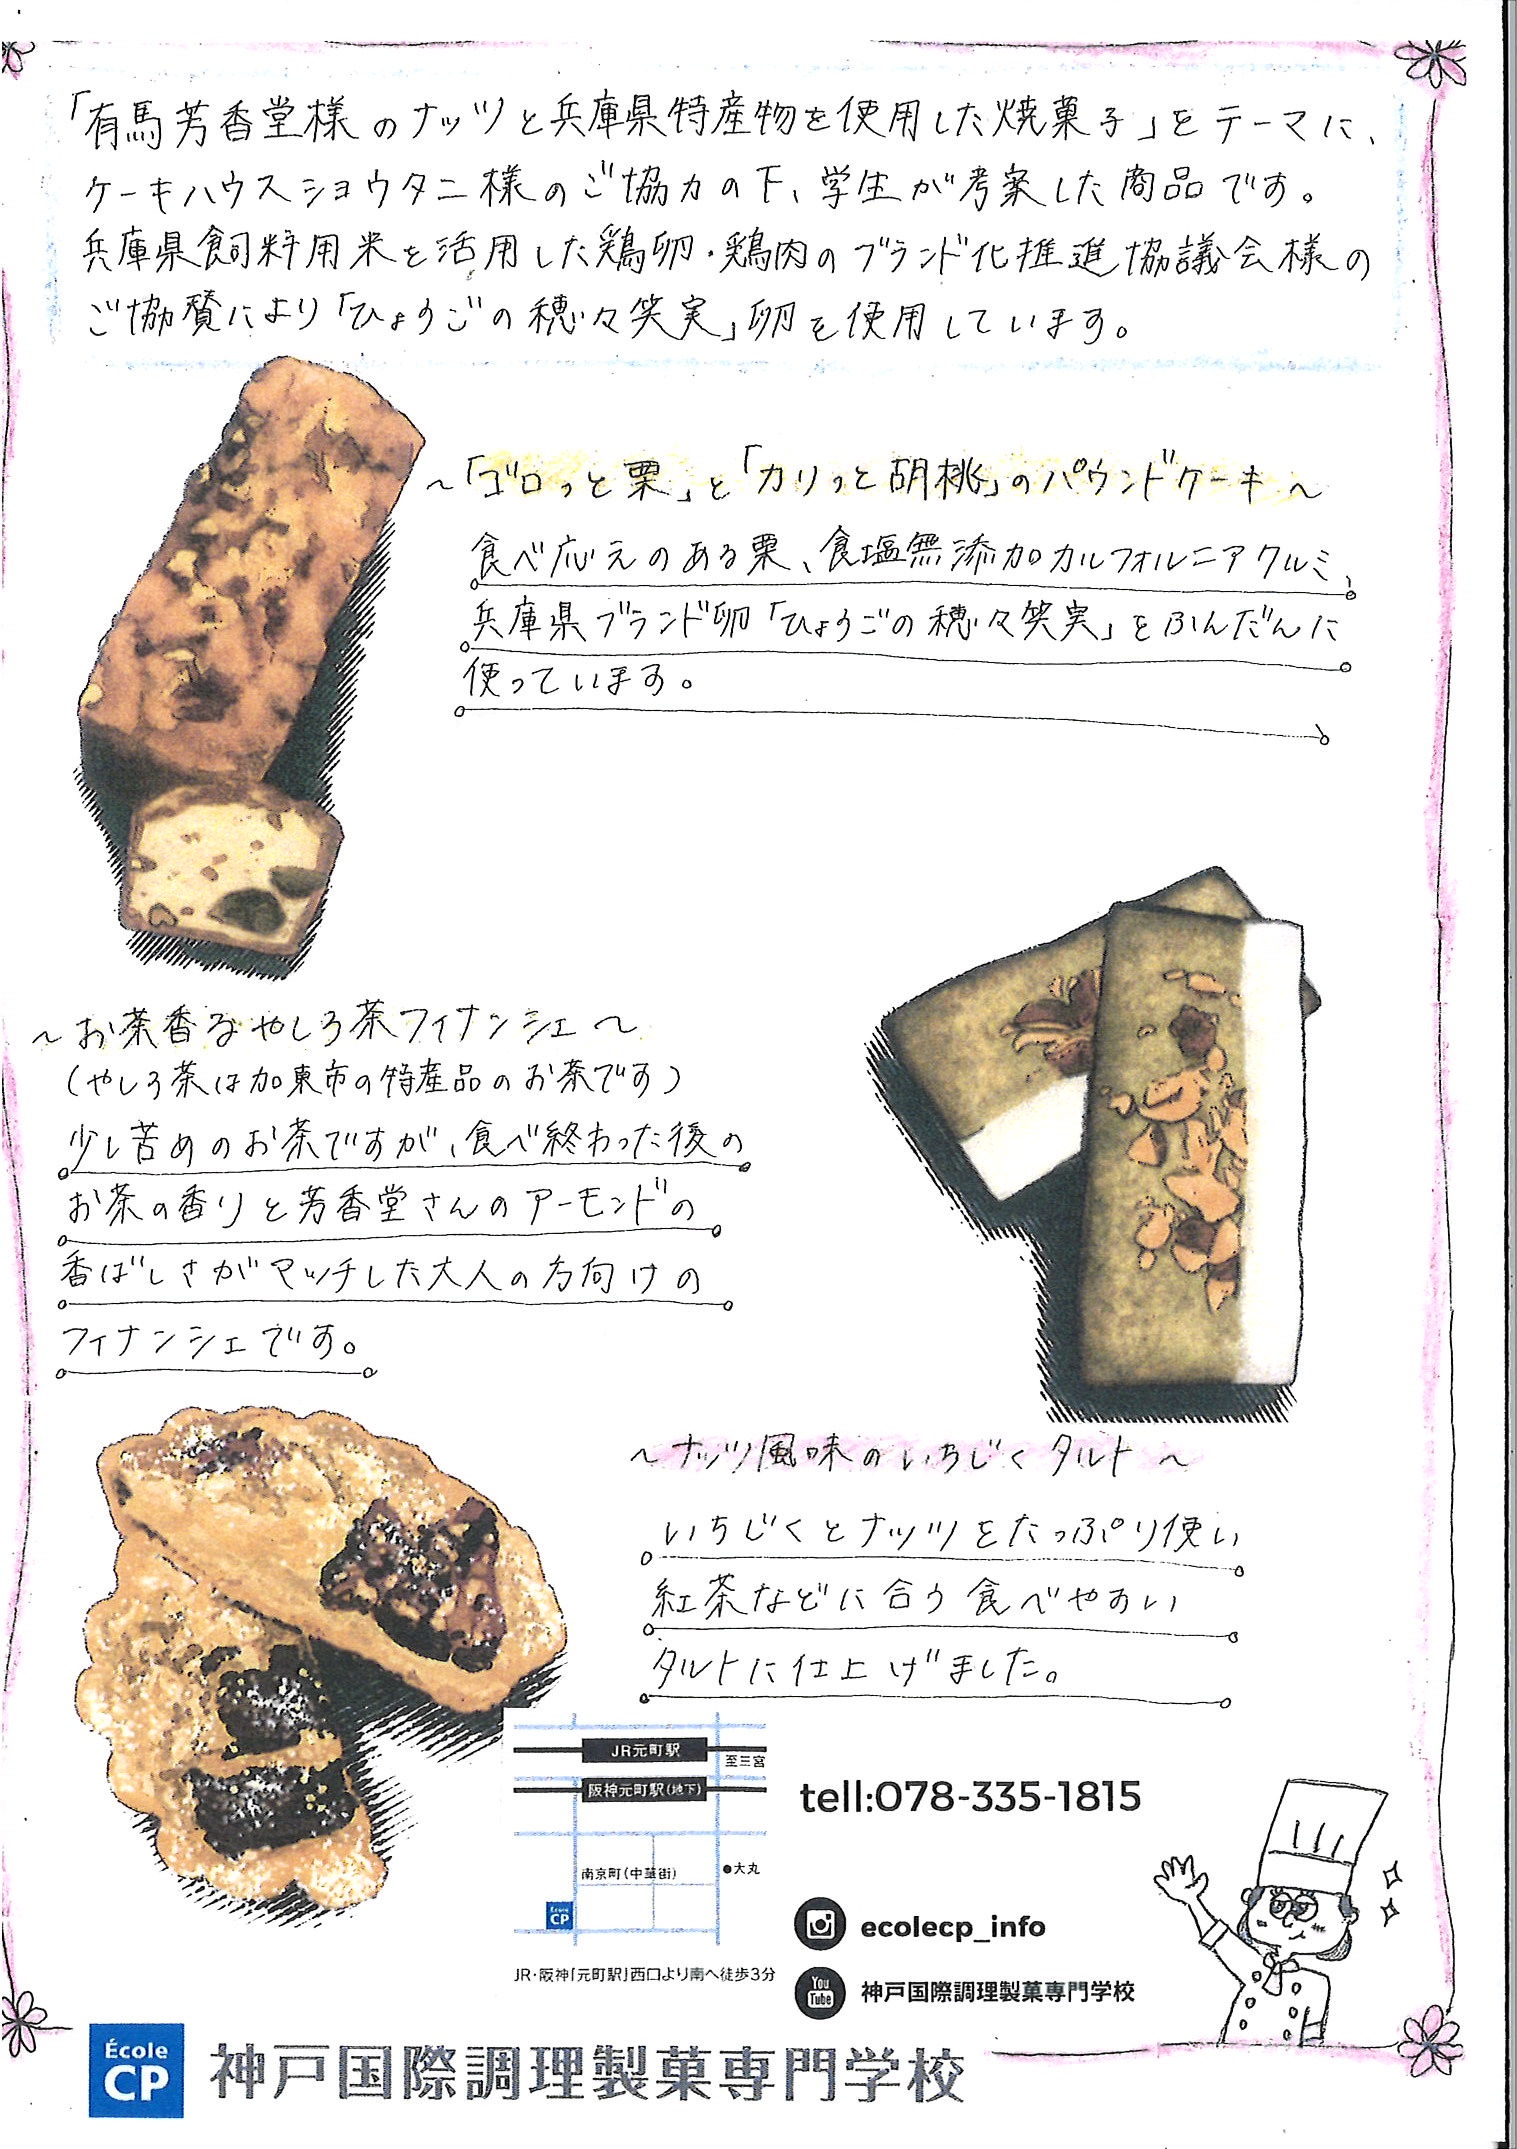 「有馬芳香堂様のナッツと兵庫県特産物を使用した焼菓子」をテーマに、
ケーキハウスショウタニ様のご協力の下、学生が考案した商品です。
兵庫県飼料用米を活用した鶏卵・鶏肉のブランド化推進協議会様の
ご協賛により「ひょうごの穂々笑実」卵を使用しています。
～「ゴロっと栗」と「カリっと胡桃」のパウンドケーキ～
食べ応えのある栗、食塩無添加カルフォルニアクルミ、
兵庫県ブランド卵「ひょうごの穂々笑実」をふんだんに
使っています。
～お茶香るやしろ茶フィナンシェ～
(やしろ茶は加東市の特産品のお茶です)
少し苦めのお茶ですが、食べ終わった後の
お茶の香りと芳香堂さんのアーモンドの
香ばしさがマッチした大人の方向けの
フィナンシェです。
～ナッツ風味のいちじくタルト～
いちじくとナッツをたっぷり使い
紅茶などに合う食べやすい
タルトに仕上げました。
JR元町駅
至三宮
阪神元町駅(地下)
南京町(中華街)
●大丸
École
CP
JR・阪神「元町駅」西口より南へ徒歩3分
tell:078-335-1815
ecolecp_info
You
Tube
神戸国際調理製菓専門学校
École
CP
神戸国際調理製菓専門学校